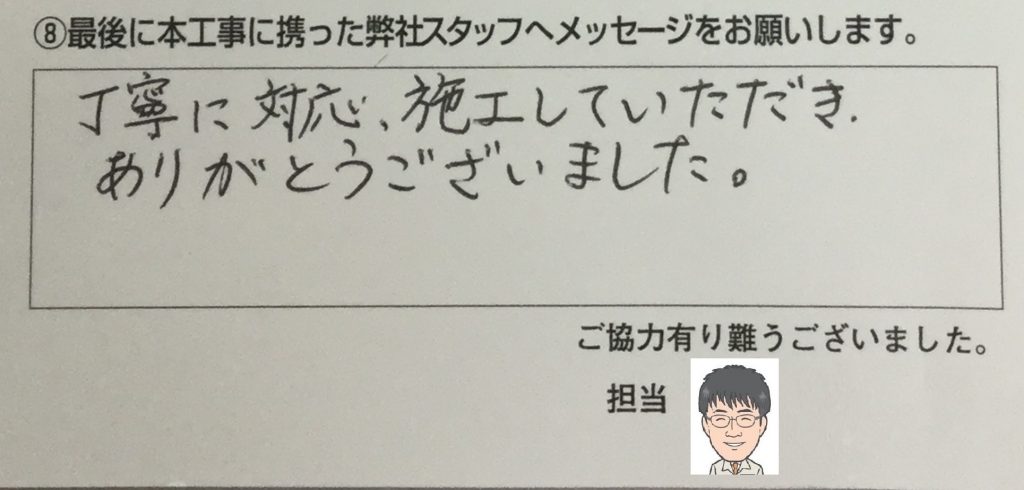 ⑧最後に本工事に携った弊社スタッフへメッセージをお願いします。
丁寧に対応、施工していただき、
ありがとうございました。
ご協力有り難うございました。
担当